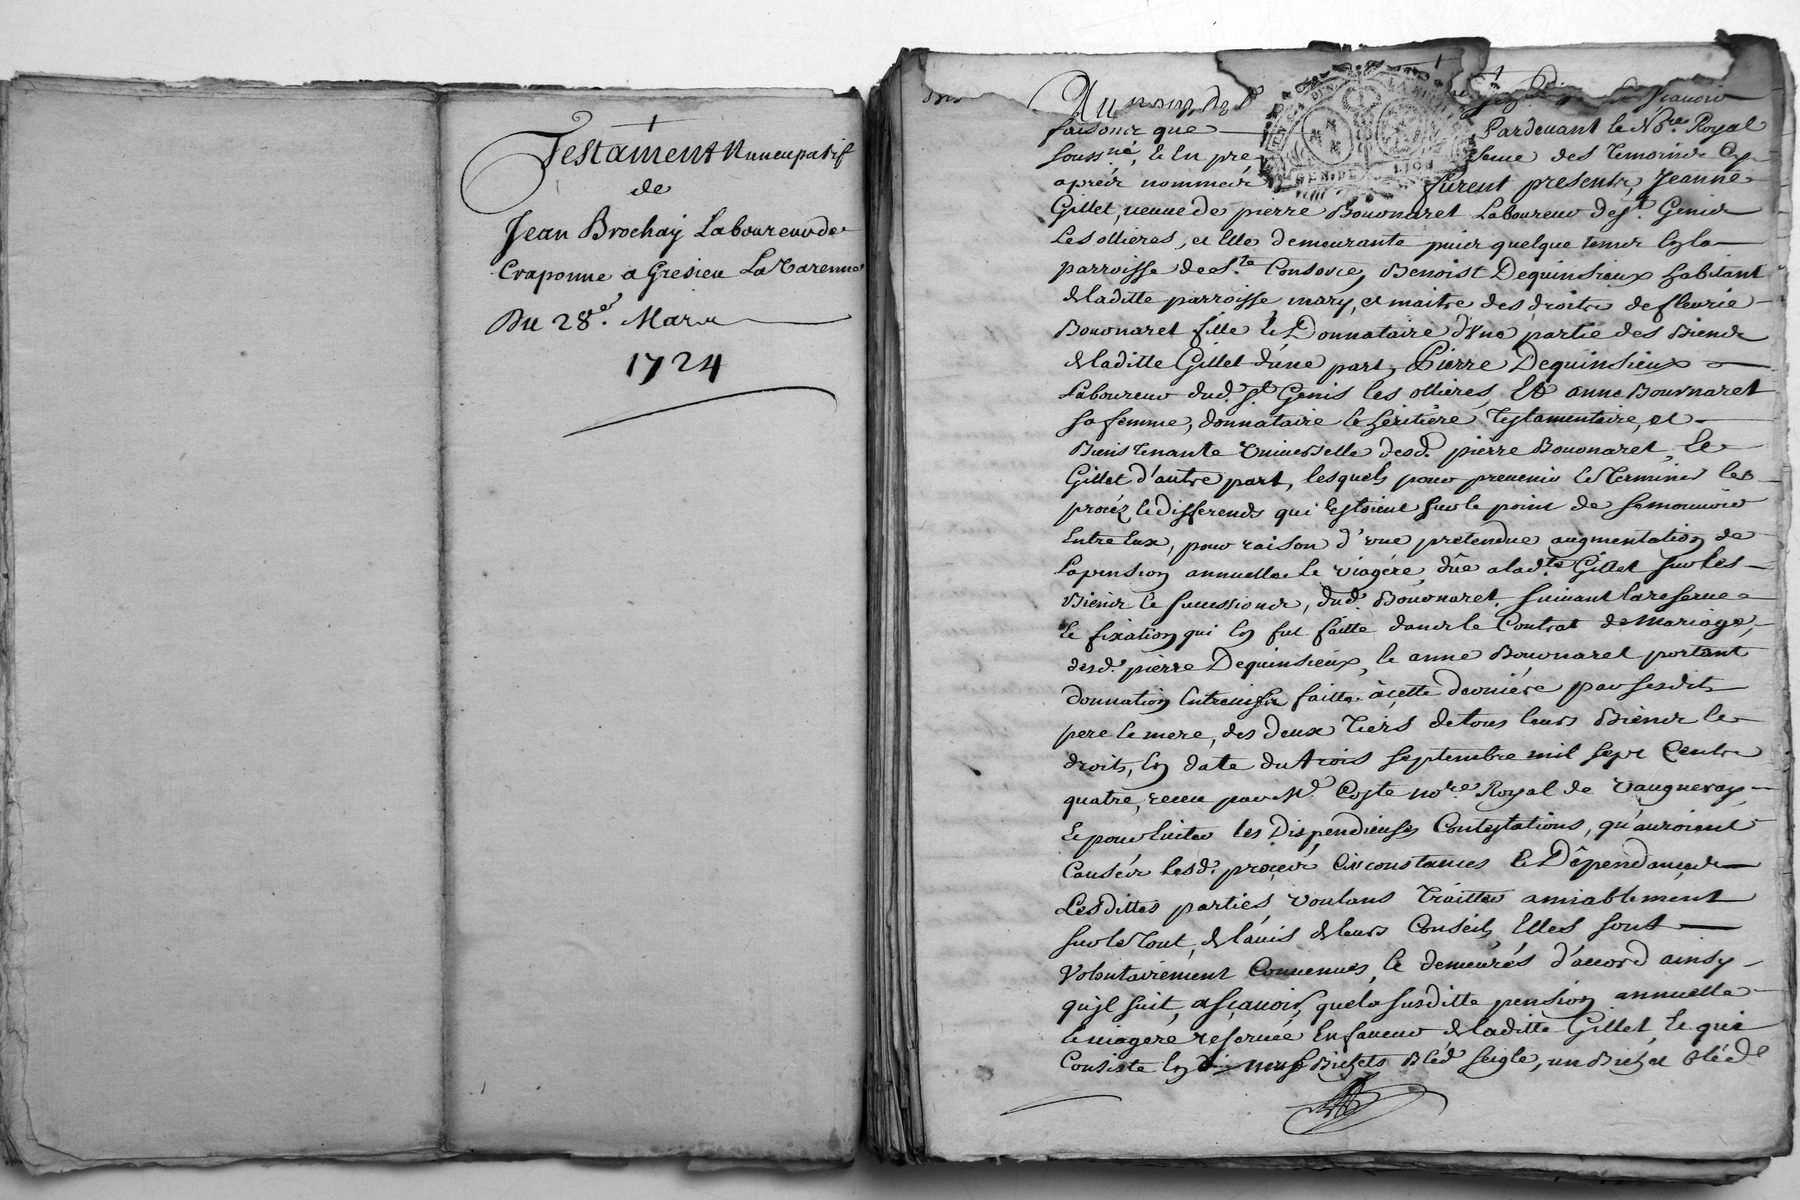 Testament Nuncupatif
de
Jean Brochay Laboureur de
Craponne a Gresieu La Varenne
Du 28e. Mars
1724
Au nom de scavoir
faisons que Pardevant le No.re Royal
soussné, & En présence des temoins cy
apres nommés furent presents, Jeanne
Gillet, veuve de pierre Bouvnaret Laboureur de St. Genis
Les ollieres, et Elle demeurante puis quelque temps en la
parroisse de Ste. Consorce, Benoist Dequinsieux habitant
de laditte parroisse, mary, et maitre des droits de fleurie
Bouvnaret fille & Donnataire d'Une partie des Biens
de laditte Gillet d'une part, Pierre Dequinsieux
Laboureur dud. St. Genis les ollieres, Et anne Bouvnaret
sa femme, donnataire & héritière Testamentaire, et
Biens tenante Universelle desd. pierre Bouvnaret, &
Gillet d'autre part, lesquels pour prevenir & Terminer les
procéz & differends qui Estoient sur le point de se mouvoir
Entre Eux, pour raison d'une pretendue augmentation de
La pension annuelle & viagére, dûe a lad.te Gillet sur les
Biens & successions, dud. Bouvnaret, suivant la reserve
& fixation qui en fut faitte dans le Contrat de Mariage,
desd. pierre Dequinsieux, & anne Bouvnaret portant
donnation Entrevifs faitte à cette derniére par sesdits
pere & mere, des deux Tiers de tous leurs Biens &
droits, en date du trois septembre mil sept Cents
quatre, receu par Me. Coste no.re Royal de Vaugneray,
& pour Eviter les Dispendieuses Contestations, qu'auroient
Causés lesd. procés Circonstances & Dépendances
Lesdittes parties voulans Traitter amiablement
sur le Tout, de l'avis de leurs Conseils, Elles sont
Volontairement Convenues, & demeurés d'accord ainsy
qu'jl suit, a scavoir, que la susditte pension annuelle
& viagére reservée En faveur de laditte Gillet, & qui
Consiste en neuf Bichets Bled seigle, un Bichet bléd